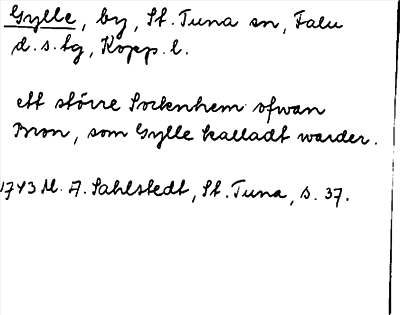 Gylle, by, St. Tuna sn, Falu
d.s.tg, Kopp. l.
ett större Sockenhem ofwan
Bron, som Gylle kalladt warder.
1743 M. A. Sahlstedt, St. Tuna, s. 37.